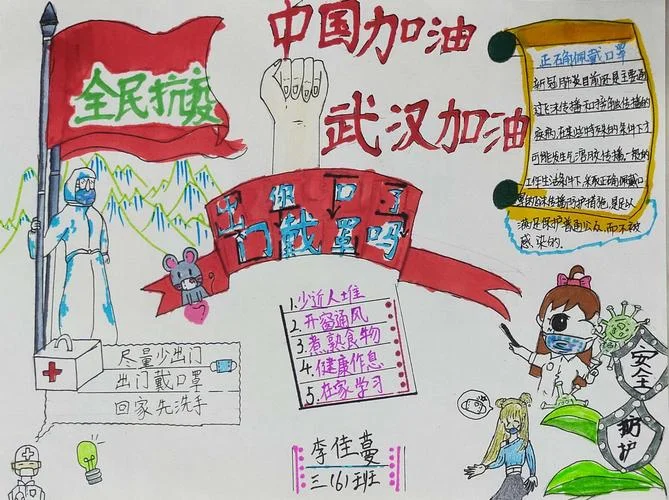 中国加油
武汉加油
全民抗疫
正确佩戴口罩
新冠肺炎目前还是主要通
过飞沫传播和接触传播的
疾病,在某些特殊的条件下才
可能发生气溶胶传播。一般的
工作生活条件下,采取正确佩戴口
罩的飞沫传播防护措施,是足以
满足保护普通公众,而不被
感染的.
出你口了
门戴罩吗
1.少近人堆
2.开窗通风
3.煮熟食物
4.健康作息
5.在家学习
尽量少出门
出门戴口罩
回家先洗手
安全
防护
李佳蔓
三(6)班